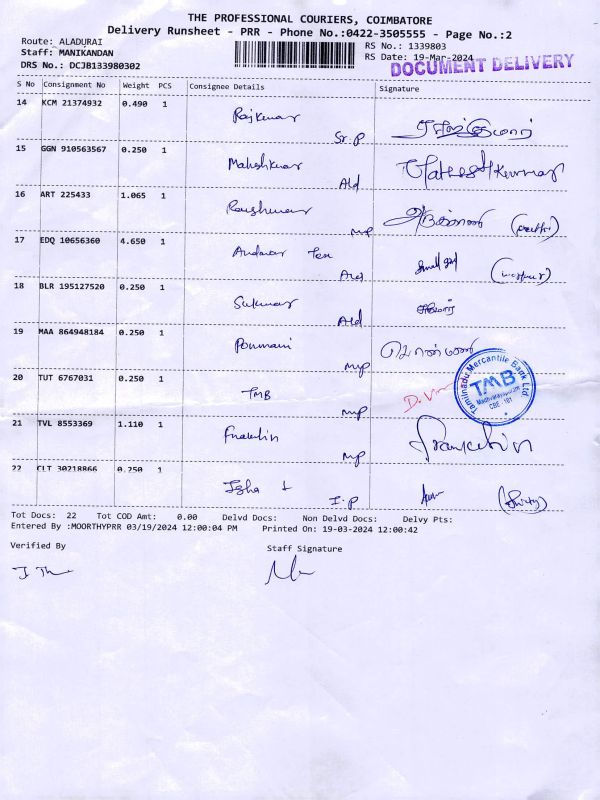 THE PROFESSIONAL COURIERS, COIMBATORE
Delivery Runsheet - PRR - Phone No.:0422-3505555 - Page No.:2
Route: ALADURAI RS No.: 1339803
Staff: MANIKANDAN RS Date: 19-Mar-2024
DRS No.: DCJB133980302 DOCUMENT DELIVERY
S No Consignment No Weight PCS Consignee Details Signature
14 KCM 21374932 0.490 1
Rajkumar Sr.p
15 GGN 910563567 0.250 1
Maheshkumar Ald
16 ART 225433 1.065 1
mp
17 EDQ 10656360 4.650 1
Andavar Tex Ald
18 BLR 195127520 0.250 1
Sukumar Ald
19 MAA 864948184 0.250 1
Ponmani mp பொன்மணி
20 TUT 6767031 0.250 1
TMB mp
Tamilnadu Mercantile Bank Ltd.
TMB
Madhvarayapuram
CBE - 101
21 TVL 8553369 1.110 1
Franklin mp Franklin
22 CLT 30218866 0.250 1
Isha I.p
Tot Docs: 22 Tot COD Amt: 0.00 Delvd Docs: Non Delvd Docs: Delvy Pts:
Entered By :MOORTHYPRR 03/19/2024 12:00:04 PM Printed On: 19-03-2024 12:00:42
Verified By Staff Signature